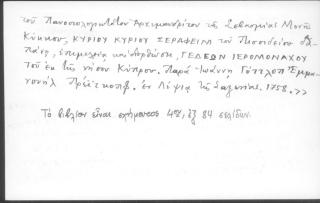 τοῦ Πανοσιολογιωτάτου Ἀρχιμανδρίτου τῆς Σεβασμίας Μονῆς
Κύκκου, ΚΥΡΙΟΥ ΚΥΡΙΟΥ ΣΕΡΑΦΕΙΜ τοῦ Πισσιδείου
ἐπιμελείᾳ καὶ διορθώσει, ΓΕΔΕΩΝ ΙΕΡΟΜΟΝΑΧΟΥ
τοῦ ἐκ τῆς νήσου Κύπρου. Παρὰ Ἰωάννῃ Γόττλοπ Ἐμμα-
νουὴλ Πρέιτκοπφ. ἐν Λιψίᾳ τῆς Σαξωνίας. 1758.>>
Τὸ βιβλίον εἶναι σχήματος 4ου, ἐξ 84 σελίδων.